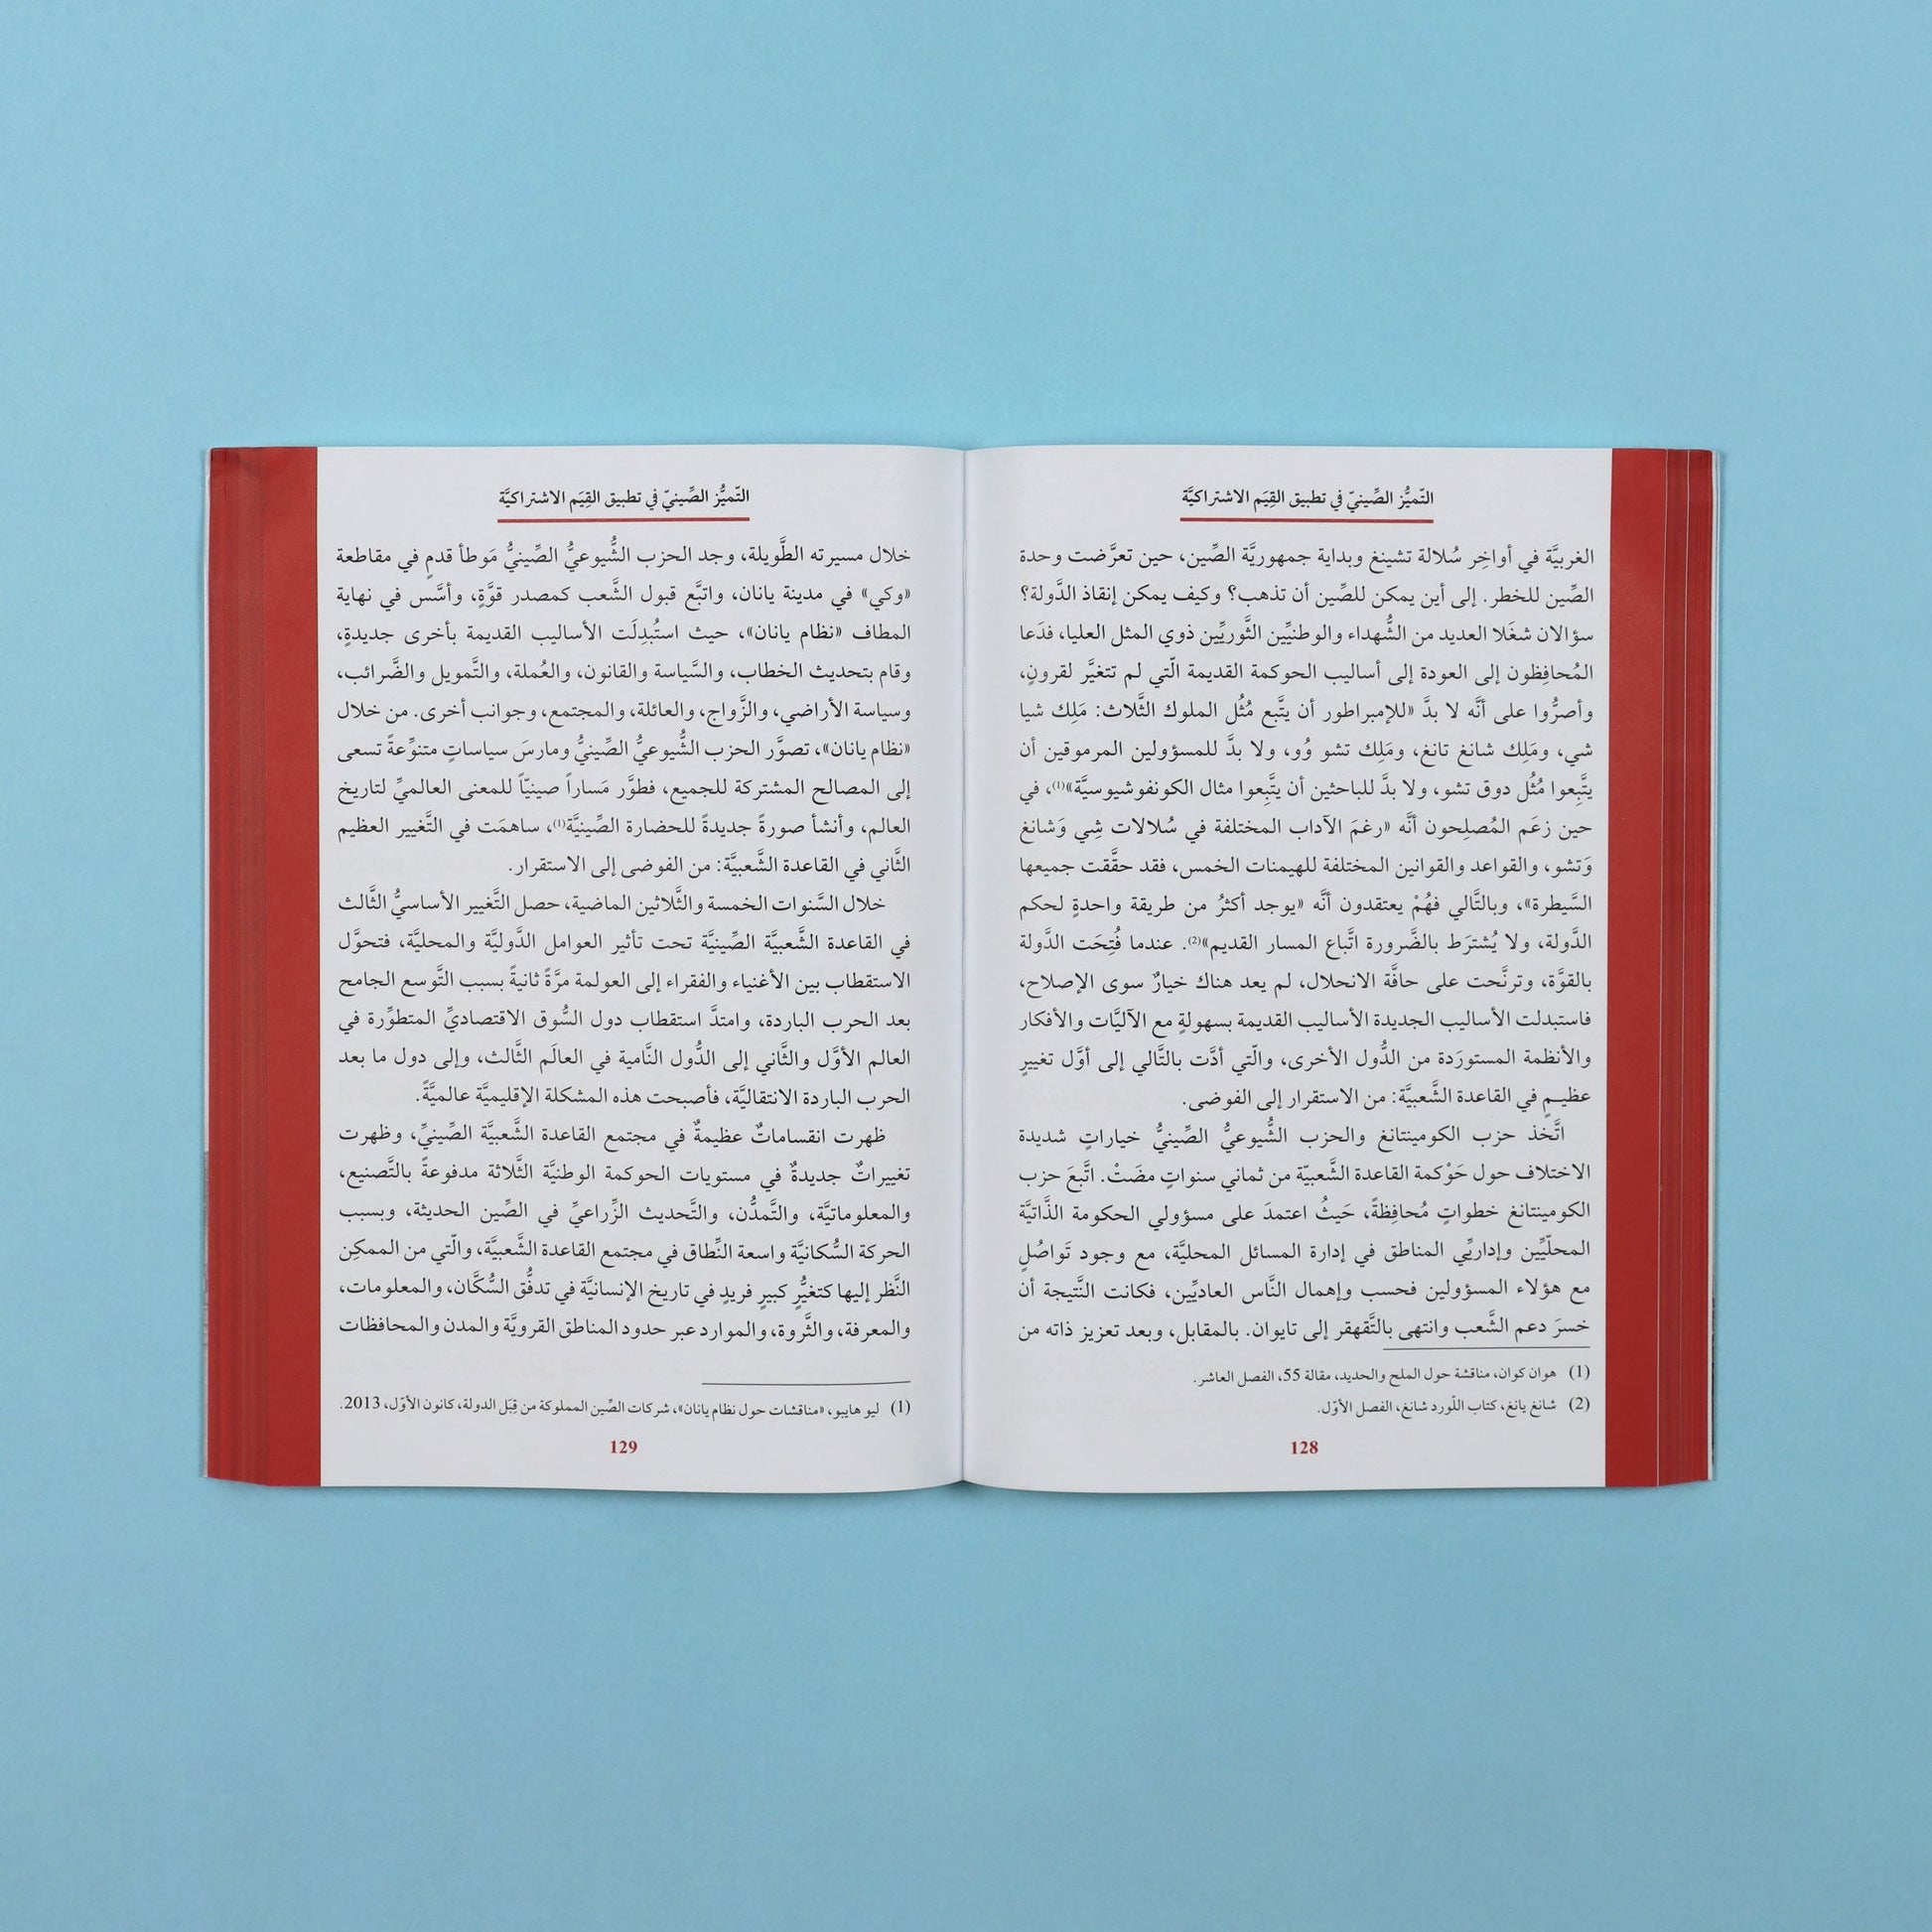 التّميُّز الصِّينيّ في تطبيق القِيَم الاشتراكيَّة
الغربيَّة في أواخِر سُلالة تشينغ وبداية جمهوريَّة الصِّين، حين تعرَّضت وحدة
الصِّين للخطر. إلى أين يمكن للصِّين أن تذهب؟ وكيف يمكن إنقاذ الدَّولة؟
سؤالان شغَلا العديد من الشُّهداء والوطنيِّين الثَّوريِّين ذوي المثل العليا، فدَعا
المُحافِظون إلى العودة إلى أساليب الحوكمة القديمة الّتي لم تتغيَّر لقرونٍ،
وأصرُّوا على أنَّه لا بدَّ «للإمبراطور أن يتَّبع مُثُل الملوك الثَّلاث: مَلِك شيا
شي، ومَلِك شانغ تانغ، ومَلِك تشو وُو، ولا بدَّ للمسؤولين المرموقين أن
يتَّبِعوا مُثُل دوق تشو، ولا بدَّ للباحثين أن يتَّبِعوا مثال الكونفوشيوسيَّة»(1)، في
حين زعَم المُصلِحون أنَّه «رغمَ الآداب المختلفة في سُلالات شِي وَشانغ
وَتشو، والقواعد والقوانين المختلفة للهيمنات الخمس، فقد حقَّقت جميعها
السَّيطرة»، وبالتَّالي فهُمْ يعتقدون أنَّه «يوجد أكثرُ من طريقة واحدةٍ لحكم
الدَّولة، ولا يُشترَط بالضَّرورة اتَّباع المسار القديم»(2). عندما فُتِحَت الدَّولة
بالقوَّة، وترنَّحت على حافَّة الانحلال، لم يعد هناك خيارٌ سوى الإصلاح،
فاستبدلت الأساليب الجديدة الأساليب القديمة بسهولةٍ مع الآليَّات والأفكار
والأنظمة المستورَدة من الدُّول الأخرى، والّتي أدَّت بالتَّالي إلى أوَّل تغييرٍ
عظيمٍ في القاعدة الشَّعبيَّة: من الاستقرار إلى الفوضى.
اتَّخذ حزب الكومينتانغ والحزب الشُّيوعيُّ الصِّينيُّ خياراتٍ شديدة
الاختلاف حول حَوْكمة القاعدة الشَّعبيّة من ثماني سنواتٍ مضَتْ. اتَّبعَ حزب
الكومينتانغ خطواتٍ مُحافِظةً، حَيثُ اعتمدَ على مسؤولي الحكومة الذَّاتيَّة
المحلّيِّين وإداريِّي المناطق في إدارة المسائل المحليَّة، مع وجود تَواصُلٍ
مع هؤلاء المسؤولين فحسب وإهمال النَّاس العاديِّين، فكانت النَّتيجة أن
خسرَ دعم الشَّعب وانتهى بالتَّقهقر إلى تايوان. بالمقابل، وبعد تعزيز ذاته من
(1) هوان كوان، مناقشة حول الملح والحديد، مقالة 55، الفصل العاشر.
(2) شانغ يانغ، كتاب اللّورد شانغ، الفصل الأوّل.
128
التّميُّز الصِّينيّ في تطبيق القِيَم الاشتراكيَّة
خلال مسيرته الطَّويلة، وجد الحزب الشُّيوعيُّ الصِّينيُّ مَوطأ قدمٍ في مقاطعة
«وكي» في مدينة يانان، واتبَّع قبول الشَّعب كمصدر قوَّةٍ، وأسَّس في نهاية
المطاف «نظام يانان»، حيث استُبدِلَت الأساليب القديمة بأخرى جديدةٍ،
وقام بتحديث الخطاب، والسَّياسة والقانون، والعُملة، والتَّمويل والضَّرائب،
وسياسة الأراضي، والزَّواج، والعائلة، والمجتمع، وجوانب أخرى. من خلال
«نظام يانان»، تصوَّر الحزب الشُّيوعيُّ الصِّينيُّ ومارسَ سياساتٍ متنوِّعةً تسعى
إلى المصالح المشتركة للجميع، فطوَّر مَساراً صينيّاً للمعنى العالميِّ لتاريخ
العالم، وأنشأ صورةً جديدةً للحضارة الصِّينيَّة(1)، ساهمَت في التَّغيير العظيم
الثَّاني في القاعدة الشَّعبيَّة: من الفوضى إلى الاستقرار.
خلال السَّنوات الخمسة والثَّلاثين الماضية، حصل التَّغيير الأساسيُّ الثَّالث
في القاعدة الشَّعبيَّة الصِّينيَّة تحت تأثير العوامل الدَّوليَّة والمحليَّة، فتحوَّل
الاستقطاب بين الأغنياء والفقراء إلى العولمة مرَّةً ثانيةً بسبب التَّوسع الجامح
بعد الحرب الباردة، وامتدَّ استقطاب دول السُّوق الاقتصاديِّ المتطوِّرة في
العالم الأوَّل والثَّاني إلى الدُّول النَّامية في العالَم الثَّالث، وإلى دول ما بعد
الحرب الباردة الانتقاليَّة، فأصبحت هذه المشكلة الإقليميَّة عالميَّةً.
ظهرت انقساماتٌ عظيمةٌ في مجتمع القاعدة الشَّعبيَّة الصِّينيِّ، وظهرت
تغييراتٌ جديدةٌ في مستويات الحوكمة الوطنيَّة الثَّلاثة مدفوعةً بالتَّصنيع،
والمعلوماتيَّة، والتَّمدُّن، والتَّحديث الزِّراعيِّ في الصِّين الحديثة، وبسبب
الحركة السُّكانيَّة واسعة النِّطاق في مجتمع القاعدة الشَّعبيَّة، والّتي من الممكِن
النَّظر إليها كتغيُّرٍ كبيرٍ فريدٍ في تاريخ الإنسانيَّة في تدفُّق السُّكَّان، والمعلومات،
والمعرفة، والثَّروة، والموارد عبر حدود المناطق القرويَّة والمدن والمحافظات
(1) ليو هايبو، «مناقشات حول نظام يانان»، شركات الصِّين المملوكة من قِبَل الدولة، كانون الأوّل، 2013.
129